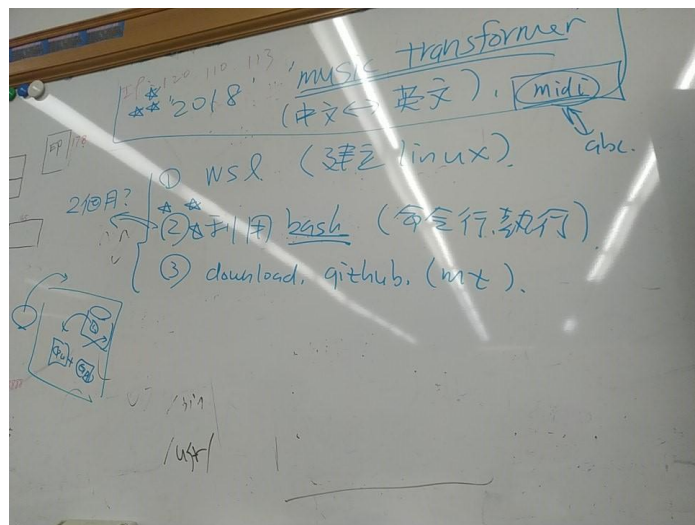 IP: 120 110 113
music transformer
☆☆☆ '2018' (中文<->英文), midi
abc.
① wsl (建立linux).
2個月?
☆☆☆② 利用 bash (命令行.執行).
③ download. github. (mt).
/bin
/usr/